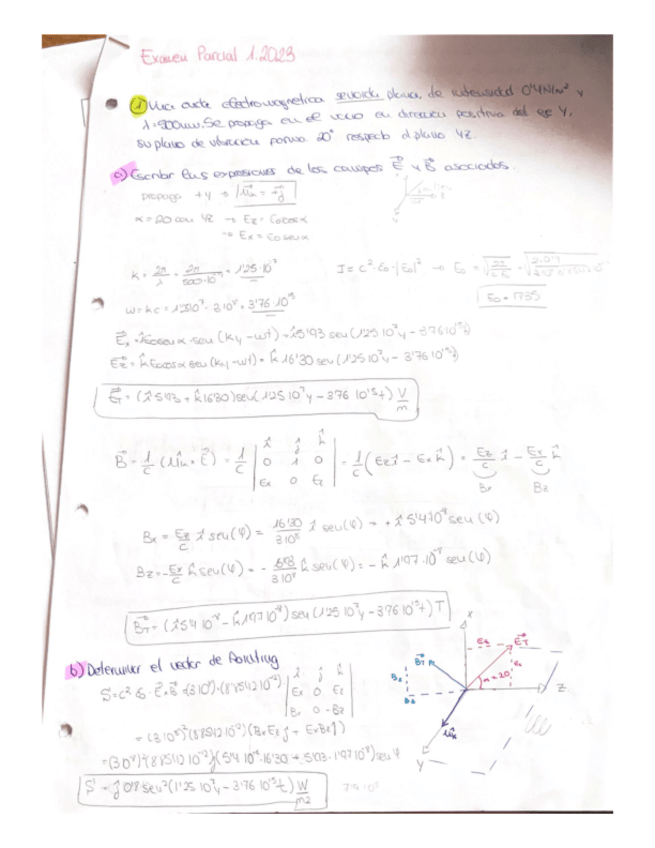 Examen Parcial 1.2023
① Una onda electromagnetica senoidal plana, de intensidad 0'4 W/m² y
λ=500nm. Se propaga en el vacio en direccion positiva del eje Y,
su plano de vibracion forma 20° respecto al plano YZ.
a) Escribir las expresiones de los campos E⃗ y B⃗ asociados.
propaga +y → û_k = +ĵ
α = 20 con YZ → Ez = E₀cosα
→ Ex = E₀senα
k = 2π/λ = 2π/500·10⁻⁹ = 1'25·10⁷
→ E₀ =
E₀ = 17'35
w = kc = 1'25·10⁷·3·10⁸ = 3'76·10¹⁵
(ky-wt) = î 5'93 sen(1'25 10⁷y - 3'76 10¹⁵t)
E⃗z = k̂ E₀cosα sen(ky-wt) = k̂ 16'30 sen(1'25 10⁷y - 3'76 10¹⁵t)
E⃗T = (î 5'93 + k̂ 16'30) sen(1'25 10⁷y - 3'76 10¹⁵t) V/m
B⃗ = 1/c (û_k × E⃗) = 1/c | î ĵ k̂ | = 1/c (Ez î - Ex k̂) = Ez/c î - Ex/c k̂
| 0 1 0 |
| Ex 0 Ez |
Bx Bz
Bx = Ez/c î sen(φ) = 16'30/3·10⁸ î sen(φ) = + î 5'4·10⁻⁸ sen(φ)
Bz = -Ex/c k̂ sen(φ) = - 5'93/3·10⁸ k̂ sen(φ) = - k̂ 1'97·10⁻⁸ sen(φ)
B⃗T = (î 5'4 10⁻⁸ - k̂ 1'97 10⁻⁸) sen(1'25 10⁷y - 3'76 10¹⁵t) T
b) Determinar el vector de Poynting
S⃗ = c² ε₀ · E⃗ × B⃗ = (3 10⁸)²·(8'8542 10⁻¹²) | î ĵ k̂ |
| Ex 0 Ez |
| Bx 0 -Bz |
= (3 10⁸)²(8'8542 10⁻¹²)(BxEz ĵ + ExBz ĵ)
= (3 10⁸)²(8'8542 10⁻¹²)(5'4 10⁻⁸·16'30 + 5'93·1'97 10⁻⁸) sen² φ
S⃗ = ĵ 0'8 sen²(1'25 10⁷y - 3'76 10¹⁵t) W/m2
x
Ex
E⃗T
B⃗T
Bx
α=20°
Bz
Z
û_k
Y